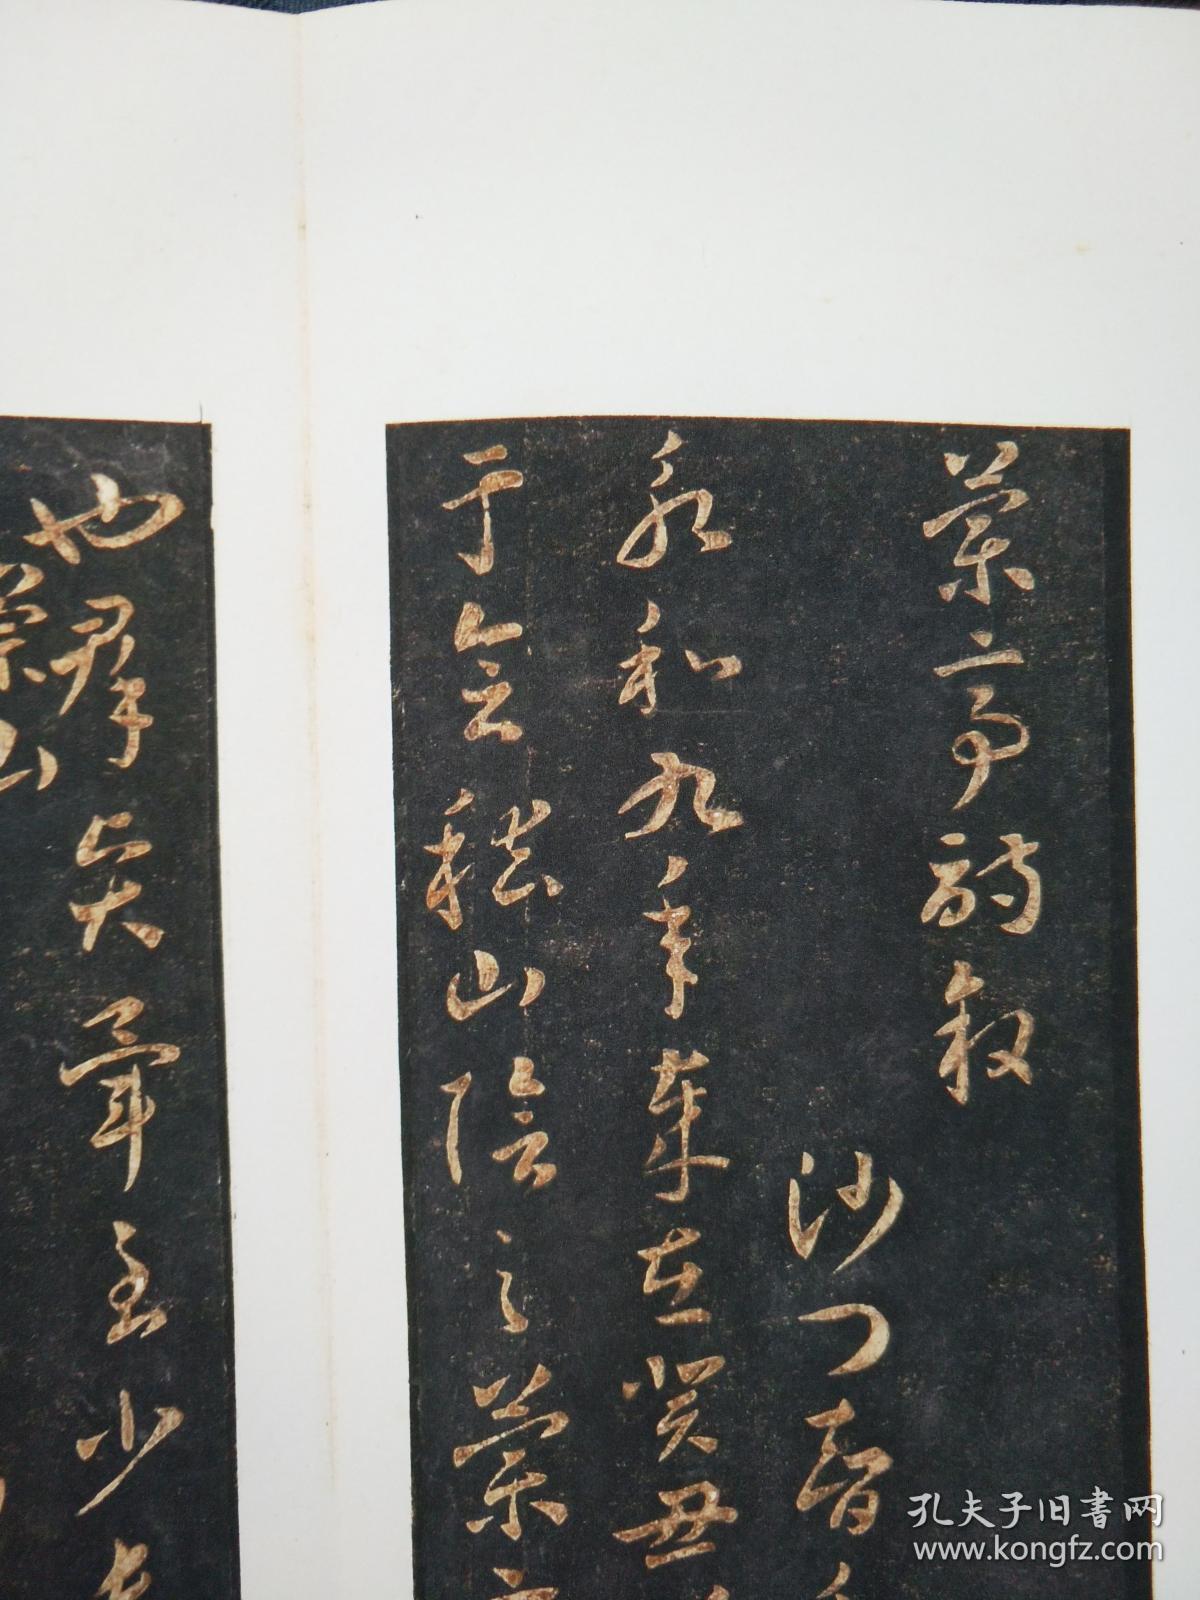 蘭亭詩叙
沙門智
永和九年歲在癸丑
于會稽山陰之蘭
也羣賢畢至少長
崇山
孔夫子旧書网
www.kongfz.com